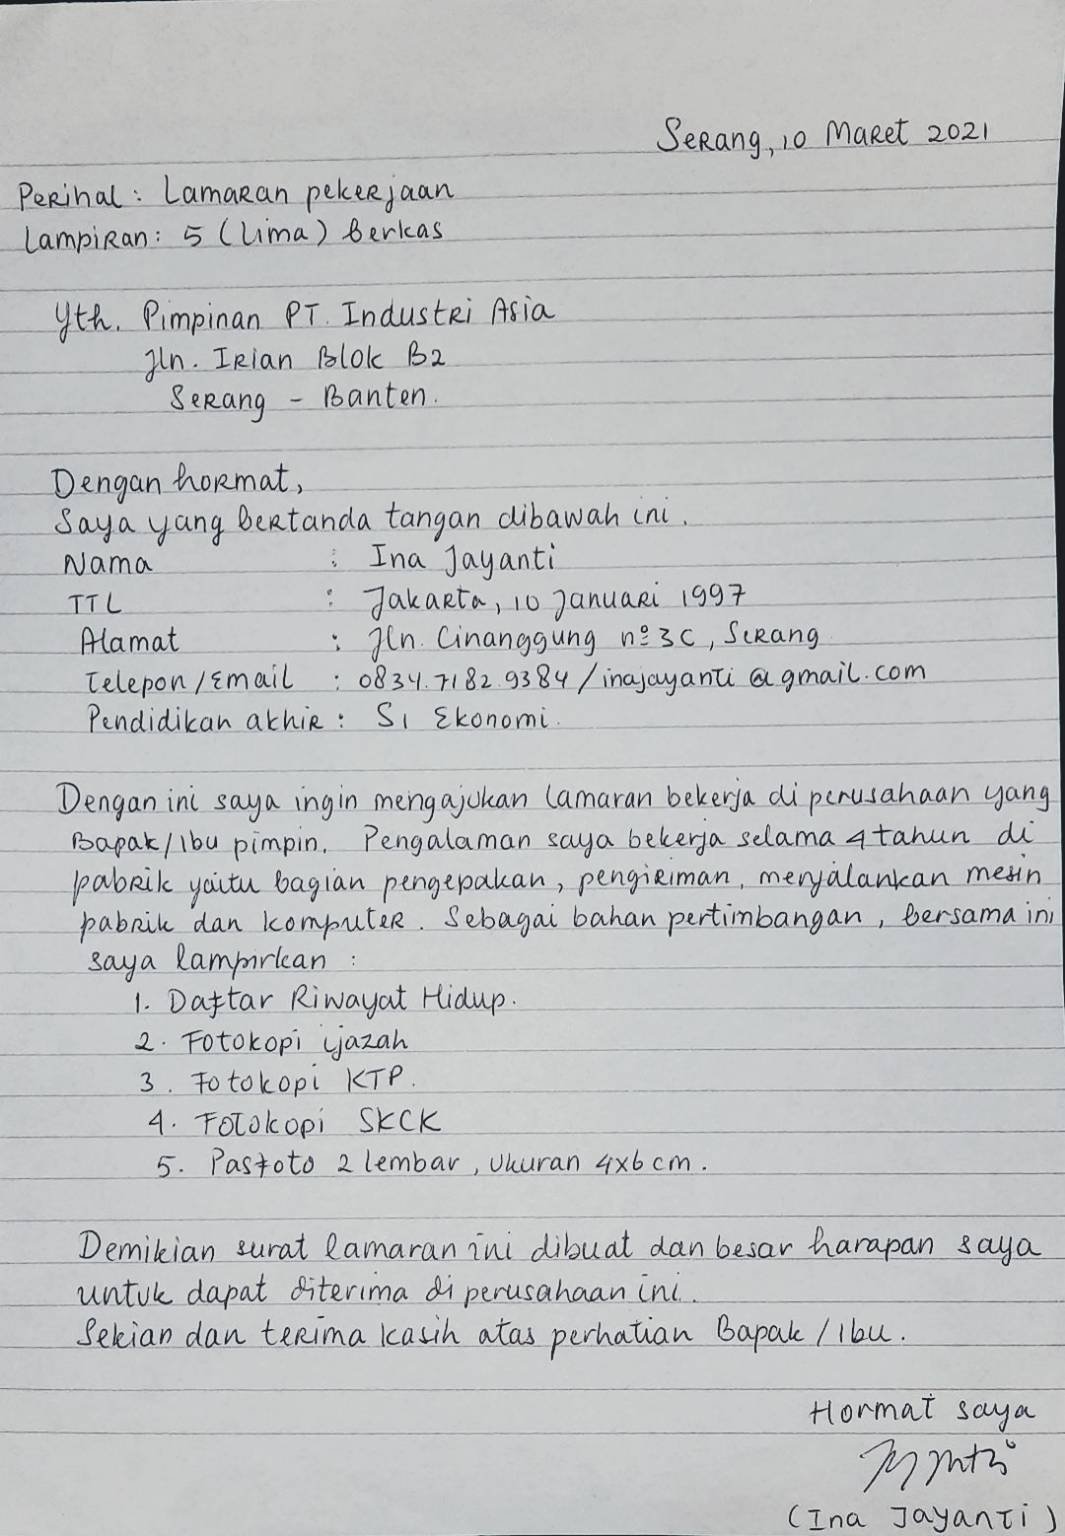 Serang, 10 Maret 2021
Perihal : Lamaran pekerjaan
Lampiran : 5 (Lima) berkas
Yth. Pimpinan PT. Industri Asia
Jln. Irian Blok B2
Serang - Banten.
Dengan hormat,
Saya yang bertanda tangan dibawah ini.
Nama : Ina Jayanti
TTL : Jakarta, 10 Januari 1997
Alamat : Jln. Cinanggung nº 3C, Serang
Telepon/Email : 0834.7182.9384/inajayanti@gmail.com
Pendidikan akhir : S1 Ekonomi.
Dengan ini saya ingin mengajukan lamaran bekerja di perusahaan yang
Bapak/Ibu pimpin. Pengalaman saya bekerja selama 4 tahun di
pabrik yaitu bagian pengepakan, pengiriman, menjalankan mesin
pabrik dan komputer. Sebagai bahan pertimbangan, bersama ini
saya lampirkan :
1. Daftar Riwayat Hidup.
2. Fotokopi ijazah
3. Fotokopi KTP.
4. Fotokopi SKCK
5. Pasfoto 2 lembar, ukuran 4x6 cm.
Demikian surat lamaran ini dibuat dan besar harapan saya
untuk dapat diterima di perusahaan ini.
Sekian dan terima kasih atas perhatian Bapak/Ibu.
Hormat saya
(Ina Jayanti)